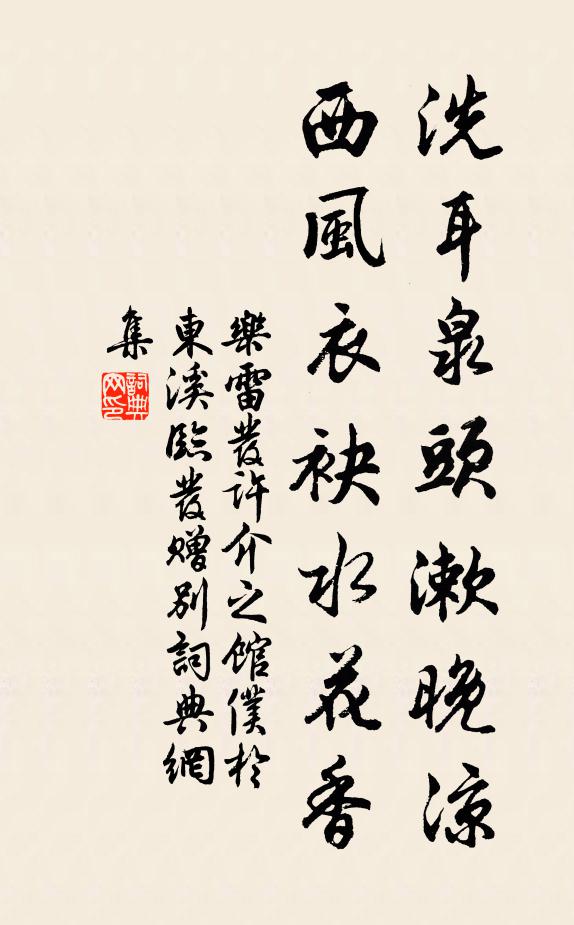 洗耳泉頭漱晚涼
西風衣袂水花香
樂雷發許介之館僕於
東溪臨發贈別詞典網
集
詞典網印